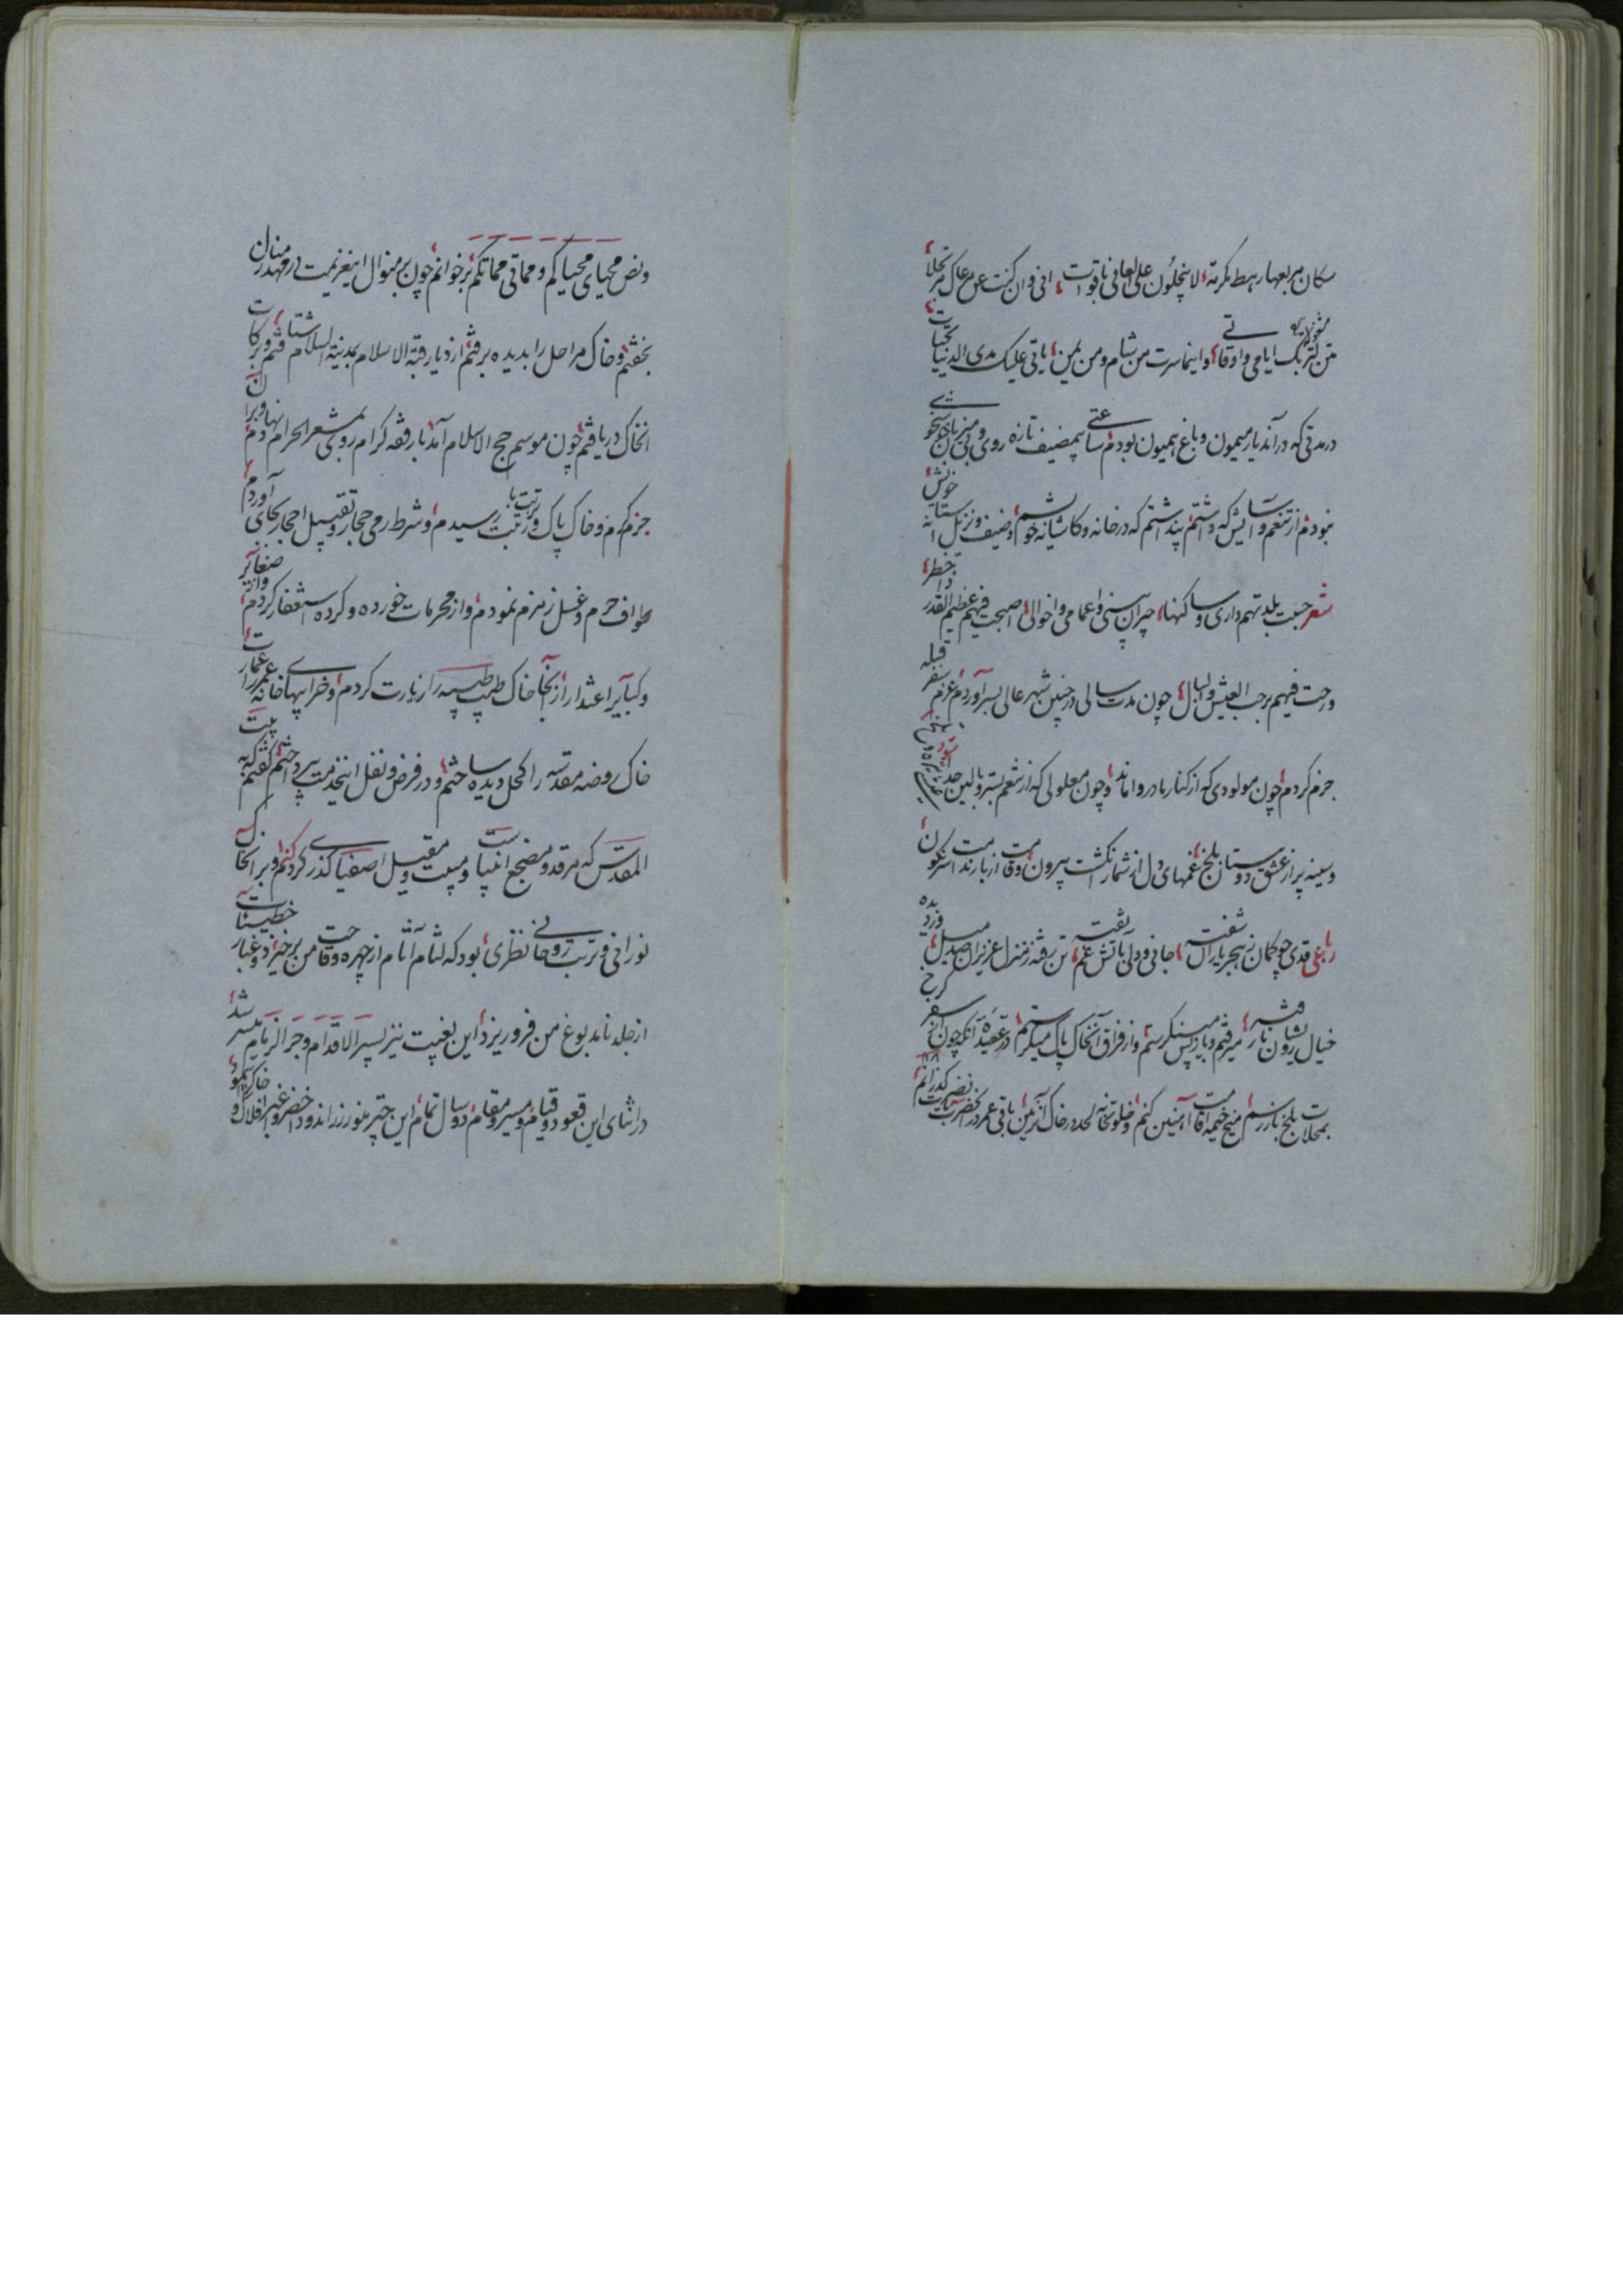 سکان مربعها رهط مکرمة لا ینجلون علی العافی باقوات انی وان کنت عن مرعاک مرتحلا
من ترک ایامی واوقاتی واینما سرت من شام ومن یمن یاتی علیک مدی الدنیا تحیات
در مدتی که در آن دیار میمون و باغ همیون بودم ساعتی بیمضیف تازه روی و بی میزبان خوشخوی
نبودم از تنعم و آسایش که داشتم پنداشتم که در خانه و کاشانه خویشم وضیف ونزیل آستانه خویش
شعر حسبت بلدتهم داری وساکنها جیران بیتی واعمامی واخوالی اصبحت فیهم عظیم القدر ذا خطر
ورحت فیهم رحب العیش والبال چون مدت سالی در چنین شهر عالی بسر آوردم عزم سفر قبله
جزم کردم چون مولودی که از کنار مادر واماند و چون معلولی که از شعم بستر و بالین جدا شود
وسینه پر از عشق دوستان بلخ غمهای دل از شمار انگشت بیرون وقامت از بار ندامت سرنگون
رباعی قدی چو کمان ز هجر یاران شفته جانی و دلی باتش غم تفته تن رفته ز منزل عزیزان صد میل
خیال یشان نارفته میرفتم و باز پس مینگرستم و از فراق آنخاک پاک میگرستم در عقیده آنکه چون از سفر کرخ
بمحلات بلخ باز رسم میخ خیمه اقامت آهنین کنم و خلوتخانه لحد در خاک آنزمین باقی عمر در حضرت بگذرانم
ونص محیای محیاکم ومماتی مماتکم برخوانم چون بر منوال اینعزیمت در مهد زمان
بخفتم و خاک مراحل را بدیده برفتم از دیار قبة الاسلام بمدینة السلام شتافتم وبرکات
آنخاک دریافتم چون موسم حج الاسلام آمد با رفقه کرام روی بمشعر الحرام نهادم
جزم کردم و خاک پاک و تربت رسیدم و شرط رمی حجار و تقبیل احجار بجای آوردم
طواف حرم وغسل زمزم نمودم و از محرمات خورده و کرده استغفار کردم و از صغایر
وکبایر اعتذار از آنجا خاک طیب طیبه را زیارت کردم و خرابیهای خانه عمر را عمارت
خاک روضه مقدسه را کحل دیده ساختم و در فرض و نفل اینخدمت بپرداختم گفتم که به بیت
المقدس که مرقد و مضجع انبیاست و مبیت و مقیل اصفیا گذری کنم و بر آنخاک
نورانی و تربت روحانی نظری بود که لثام آثام از چهره وقاحت من برخیزد و غبار خطیئات
از جلد نامدبوغ من فروریزد این بغیت نیز بسیر الاقدام وجر الزمام میسر شد
در اثنای این قعود و قیام و مسیر و مقام دو سال تمام این چتر منور زراندود اخضر و اغبر افلاک و خاک